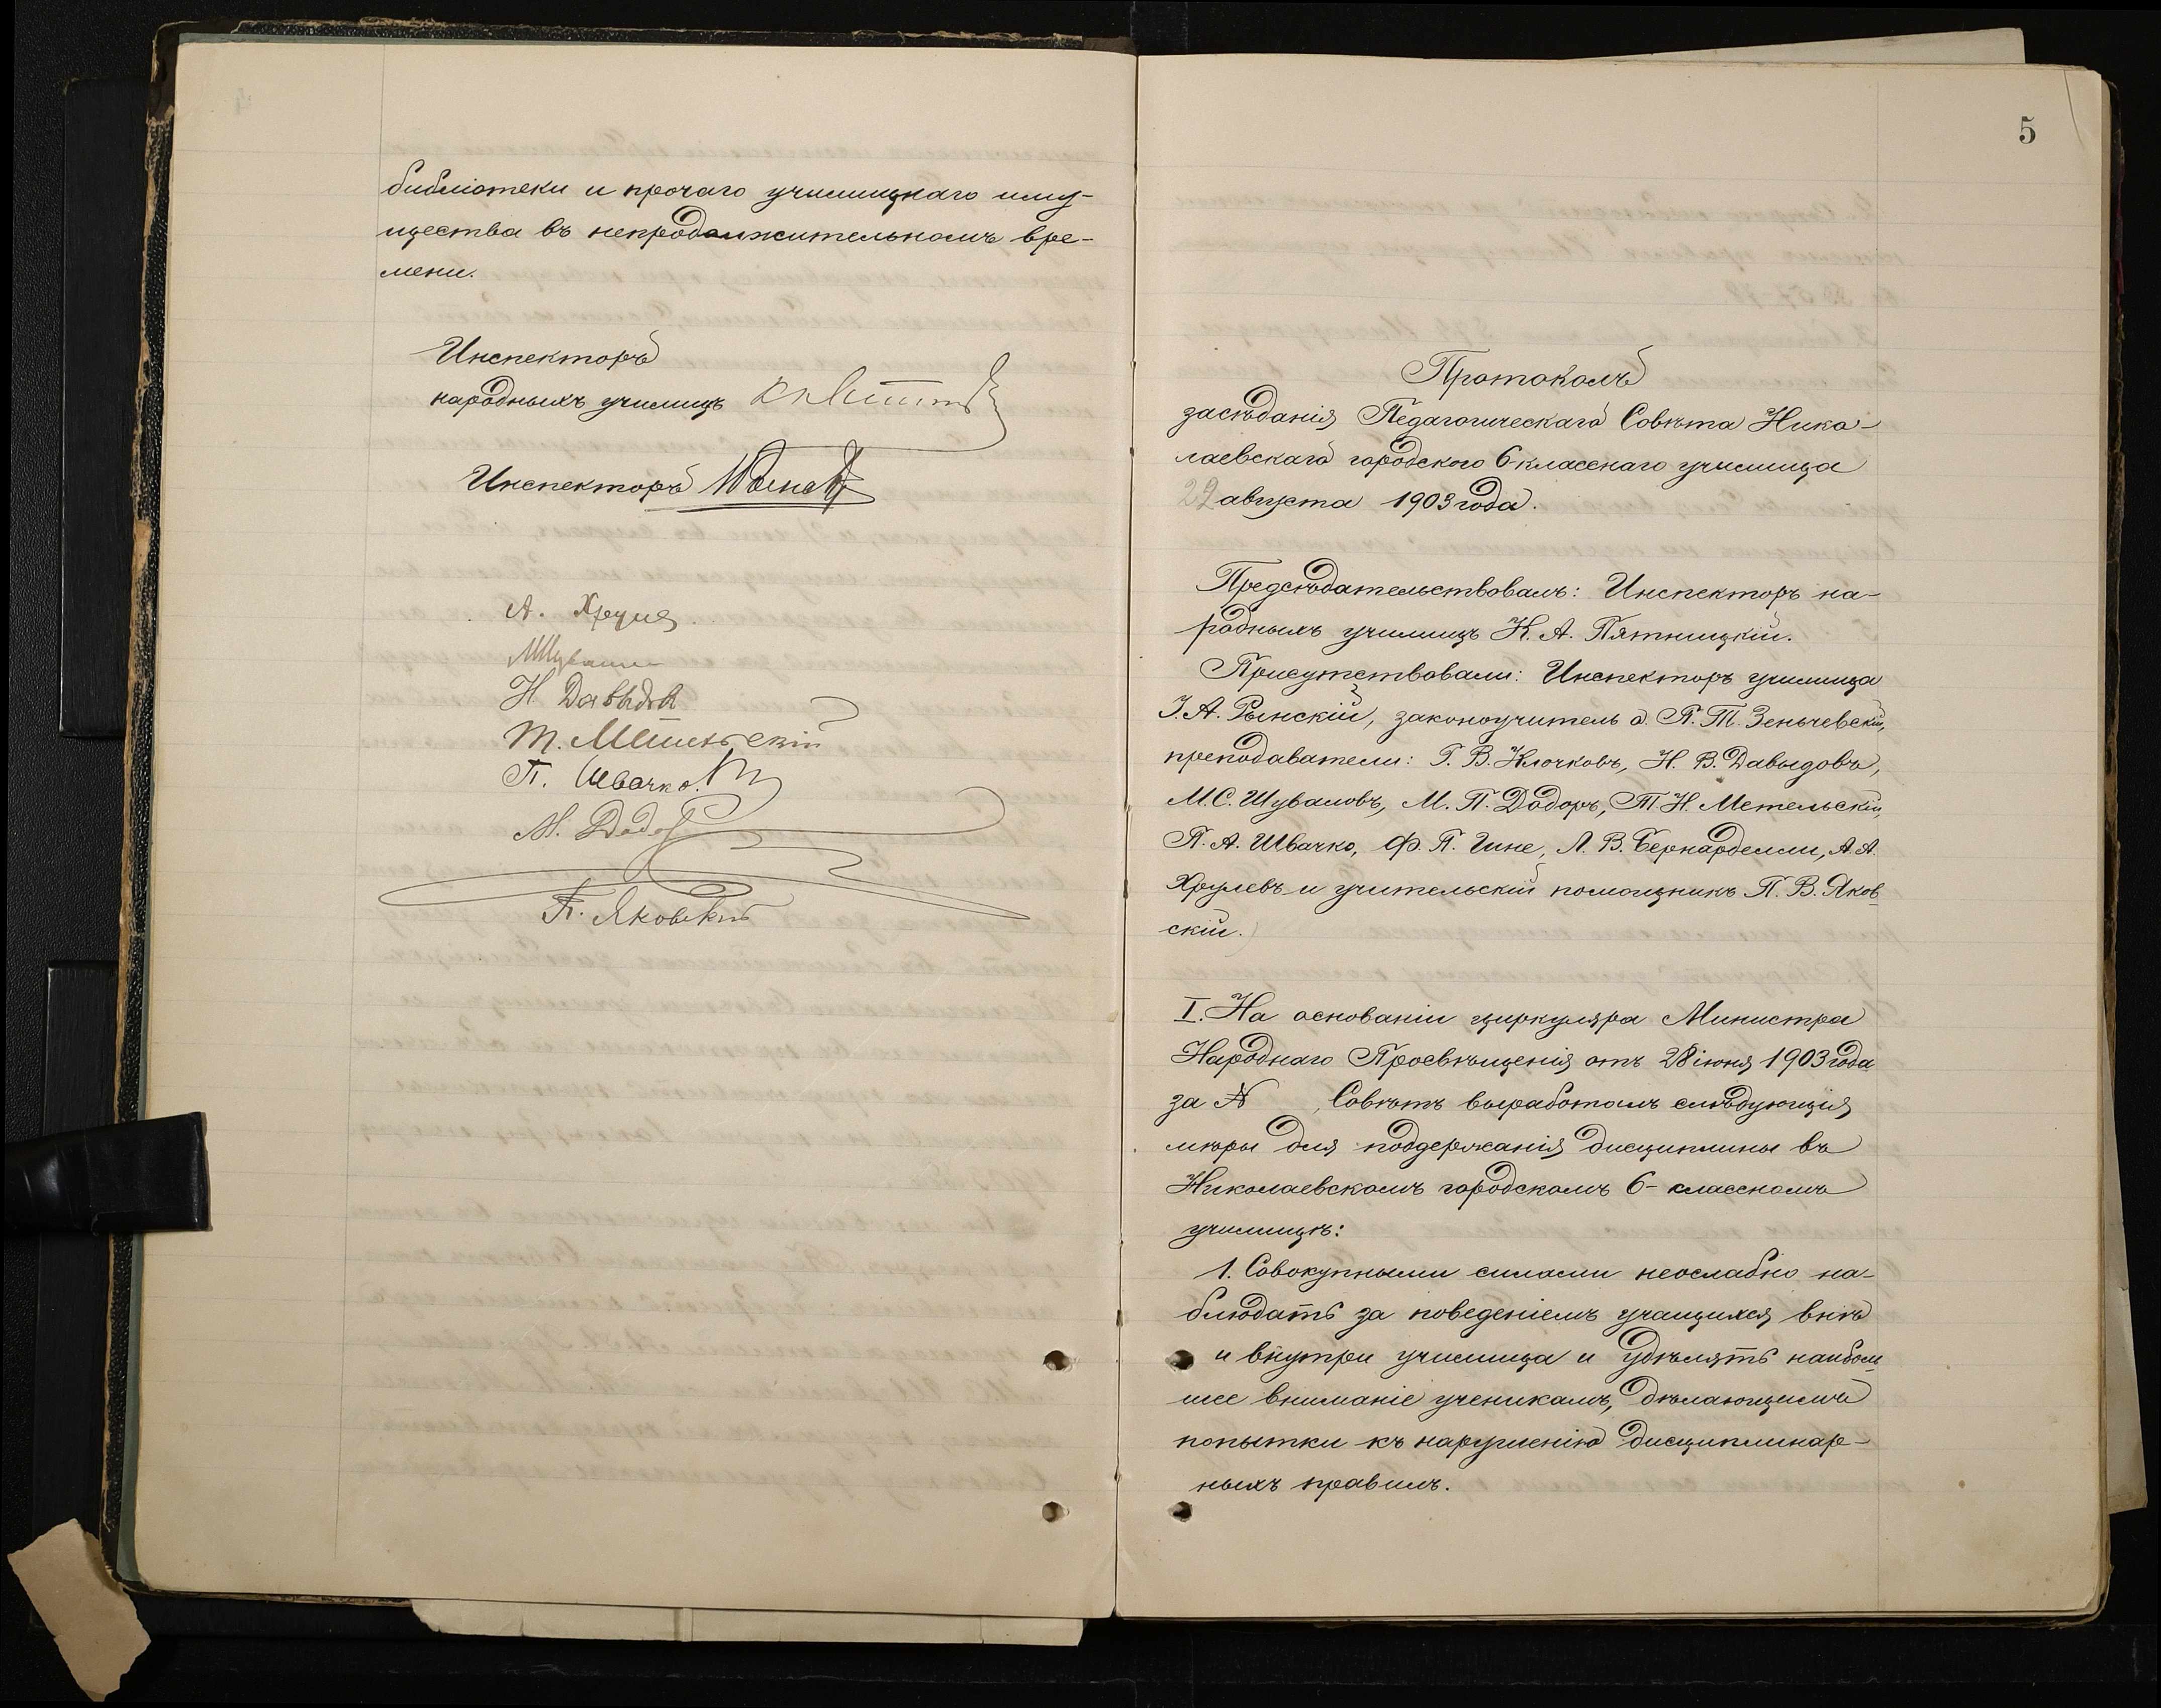 библіотеки и прочаго училищнаго иму-
щества въ непродолжительномъ вре-
мени.
Инспекторъ
народныхъ училищъ
Инспекторъ
А. Хрулев
МШувалов
Н Давыдов
Т. Метельскій
П. Швачко.
М. Додор
П. Яковскій
5
Протоколъ
засѣданія Педагогическаго Совѣта Нико-
лаевскаго городского 6-класснаго училища
29 августа 1903 года.
Предсѣдательствовалъ: Инспекторъ на-
родныхъ училищъ К. А. Пятницкій.
Присутствовали: Инспекторъ училища
І. А. Рынскій, законоучитель о. П. Т. Зеньчевскій,
преподаватели: Г. В. Клочковъ, Н. В. Давыдовъ,
М. С. Шуваловъ, М. П. Додоръ, Т. Н. Метельскій,
П. А. Швачко, Ф. П. Гине, Л. В. Бернарделли, А. А.
Хрулевъ и учительскій помощникъ П. В. Яков-
скій.
I. На основаніи циркуляра Министра
Народнаго Просвѣщенія отъ 28 іюня 1903 года
за № , Совѣтъ выработалъ слѣдующія
мѣры для поддержанія дисциплины въ
Николаевскомъ городскомъ 6-классномъ
училищѣ:
1. Совокупными силами неослабно на-
блюдать за поведеніемъ учащихся внѣ
и внутри училища и удѣлять наиболь-
шее вниманіе ученикамъ, дѣлающимъ
попытки къ нарушенію дисциплинар-
ныхъ правилъ.